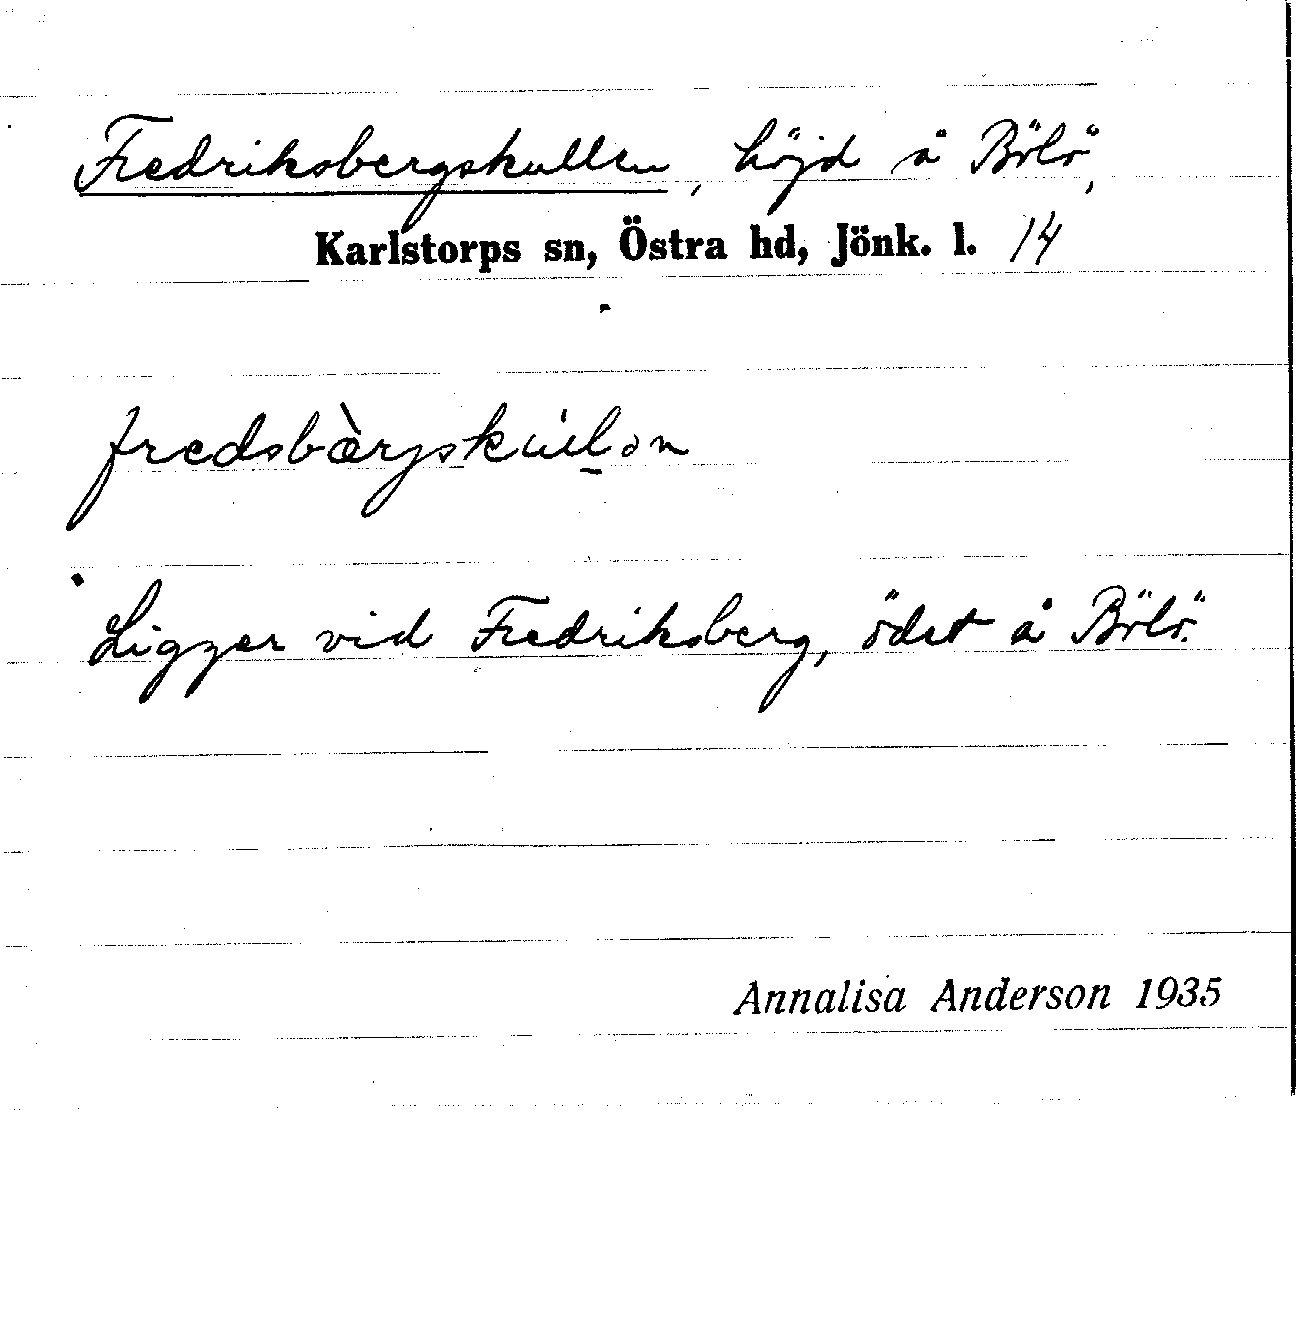 Fredriksbergskullen, höjd å Bölö,
Karlstorps sn, Östra hd, Jönk. l. 14
fredsbæ̀rjskúl̲ən
Ligger vid Fredriksberg, ödet å Bölö.
Annalisa Anderson 1935